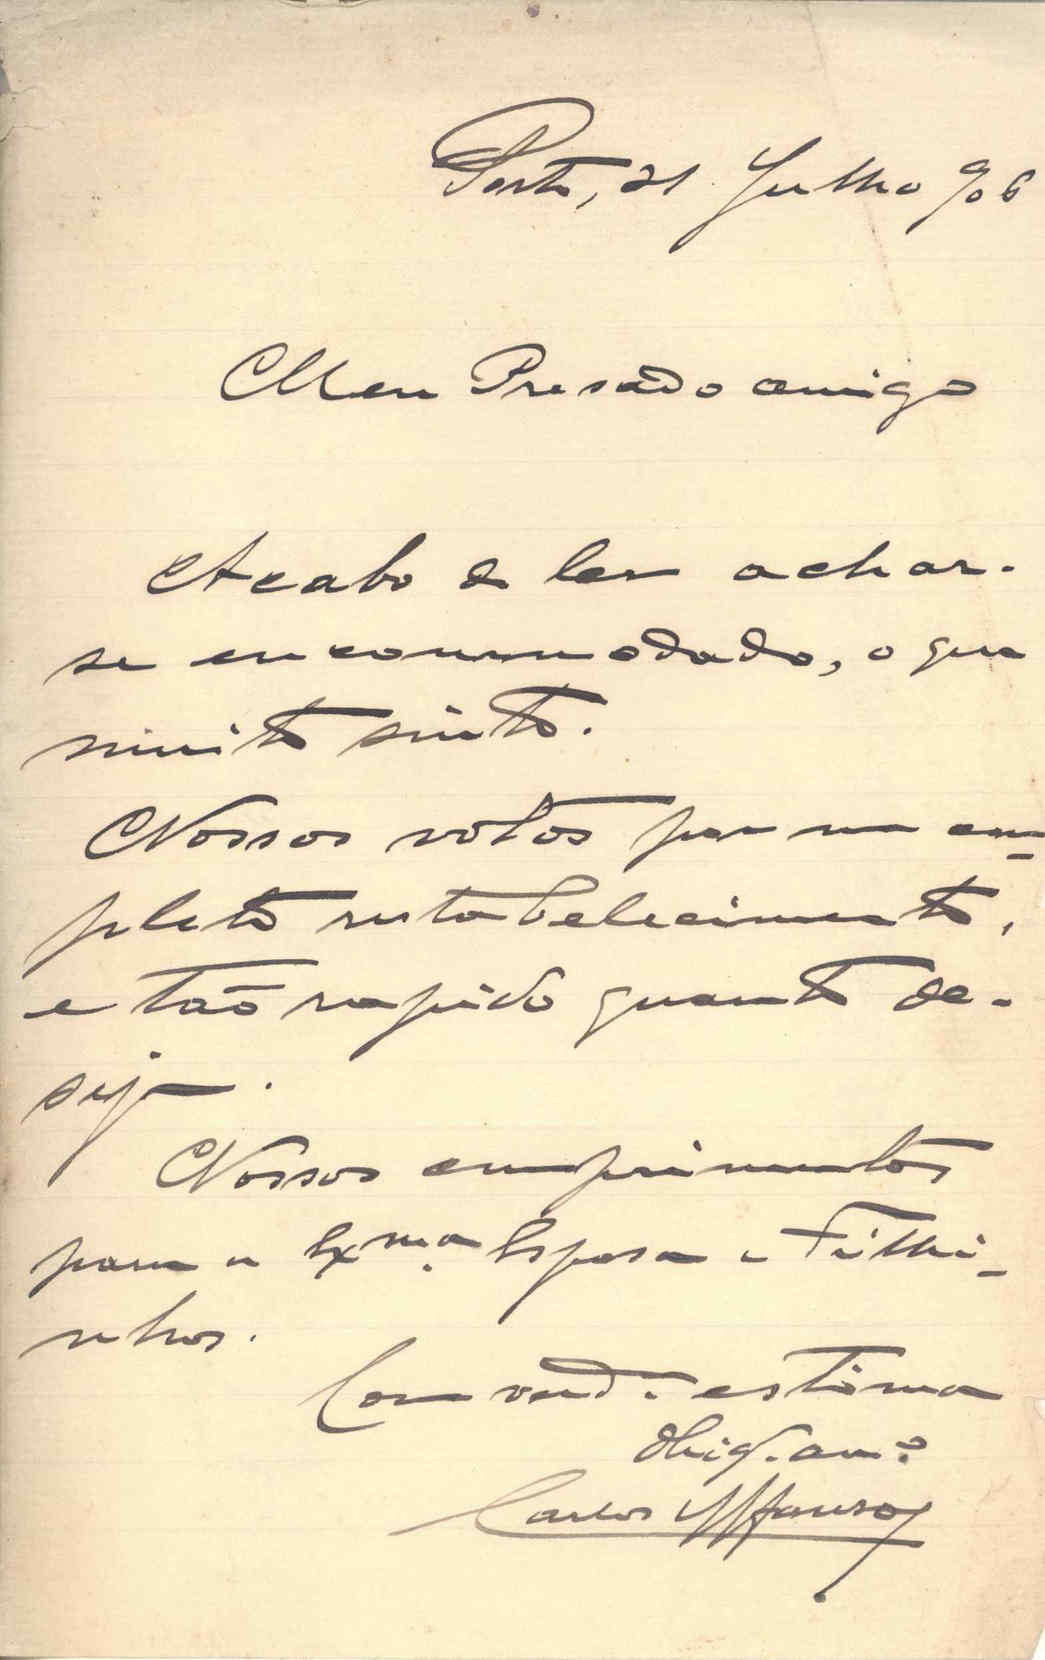 Porto, 21 Julho 906
Meu Presado amigo
Acabo de ler achar-
se encommodado, o que
muito sinto.
Nossos votos por um com-
pleto restabelecimento,
e tão rapido quanto de-
seja.
Nossos cumprimentos
para a Exma. Esposa e Filhi-
nhos.
Com verd.a estima
obig. am.o
Carlos Affonso